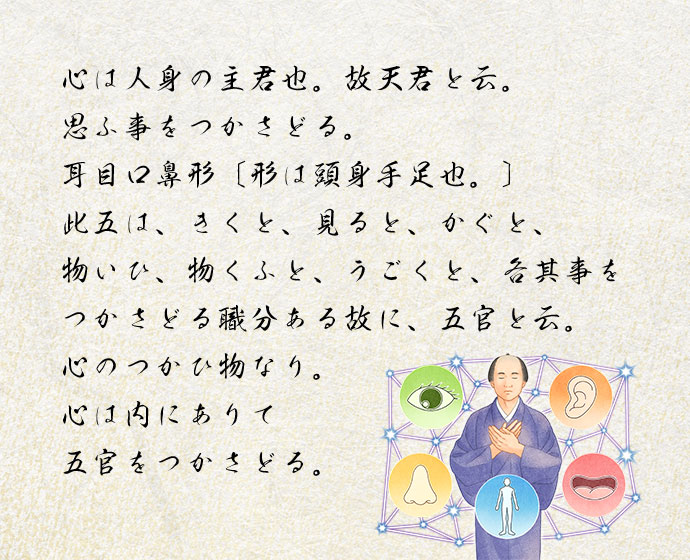 心は人身の主君也。故天君と云。
思ふ事をつかさどる。
耳目口鼻形〔形は頭身手足也。〕
此五は、きくと、見ると、かぐと、
物いひ、物くふと、うごくと、各其事を
つかさどる職分ある故に、五官と云。
心のつかひ物なり。
心は内にありて
五官をつかさどる。